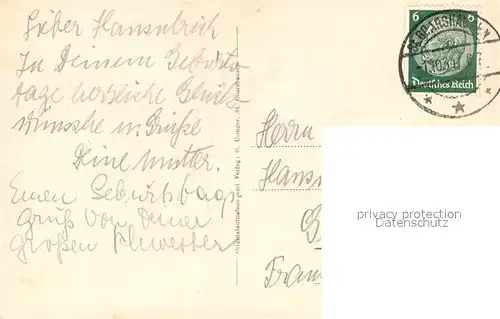 Lieber Hansulrich
Zu Deinem Geburts
tage herzliche Glück-
wünsche u. Grüße
Deine Mutter.
Einen Geburtstags
gruß von Deiner
großen Schwester
Herrn
Hans
Fran
6 6
Deutsches Reich
privacy protection
Datenschutz